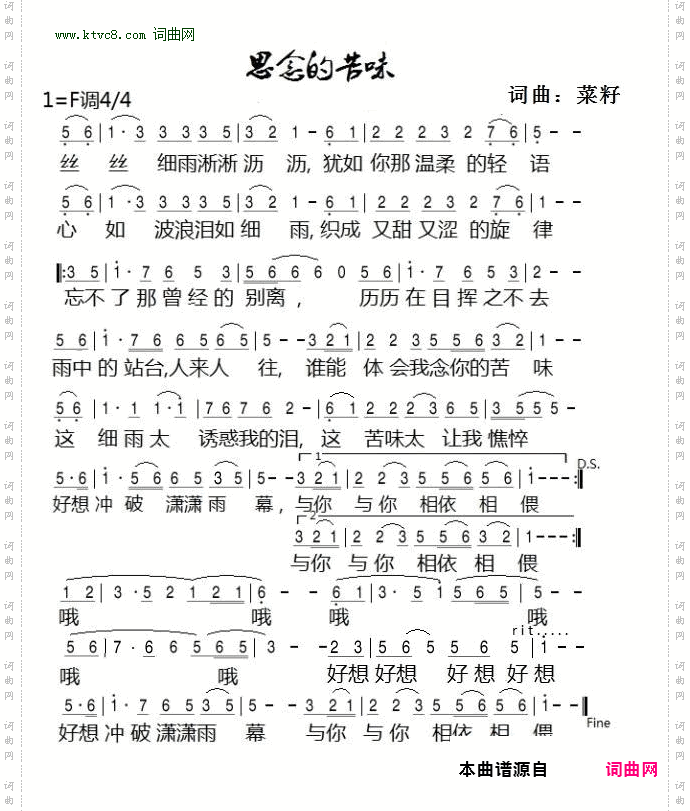 www.ktvc8.com 词曲网
思念的苦味
1=F调4/4
词曲：菜籽
5 6 | 1· 3 3 3 3 5 | 3 2 1 - 6 1 | 2 2 2 3 2 7 6 | 5 - -
丝 丝 细雨淅淅 沥 沥, 犹如 你那 温柔 的轻 语
5 6 | 1· 3 3 3 3 5 | 3 2 1 - 6 1 | 2 2 2 3 2 7 6 | 1 - -
心 如 波浪泪如 细 雨, 织成 又甜 又涩 的旋 律
‖: 3 5 | 1· 7 6 5 3 | 5 6 6 6 0 5 6 | 1· 7 6 5 3 | 2 - -
忘不 了 那 曾 经 的 别离 , 历历 在 目 挥 之不 去
5 6 | 1· 7 6 6 5 6 5 | 5 - - 3 2 1 | 2 2 3 5 5 5 6 3 2 | 1 - -
雨中 的 站台,人来人 往, 谁能 体 会我念你的苦 味
5 6 | 1· 1 1 ·1 | 7 6 7 6 2 - | 6 1 2 2 2 3 6 5 | 3 5 5 5 -
这 细 雨 太 诱惑我的泪, 这 苦味太 让我 憔悴
5·6 | 1· 7 6 5 6 5 3 5 | 5 - - 3 2 1 | 2 2 3 5 5 5 6 | 1 - - - :‖
1
D.S.
好想 冲 破 潇潇 雨 幕 , 与你 与 你 相依 相 偎
2
3 2 1 | 2 2 3 5 5 5 6 3 2 | 1 - - - :‖
与你 与 你 相依 相 偎
1 2 | 3· 5 2 1 2 1 | 6 - - 6 1 | 3· 5 1 5 6 5 | 5 - -
哦 哦 哦 哦
rit.....
5 6 | 7· 6 6 5 6 5 | 3 - - 2 3 | 5 5 6 5 5 6 5 | 1 - -
哦 哦 好想 好想 好 想 好 想
5·6 | 1· 7 6 5 3 5 | 5 - - 3 2 1 | 2 2 3 5 5 5 6 | 1 - -
Fine
好想 冲 破 潇潇雨 幕 与你 与 你 相依 相 偎
本曲谱源自 词曲网
词曲网
词曲网
词曲网
词曲网
词曲网
词曲网
词曲网
词曲网
词曲网
词曲网
词曲网
词曲网